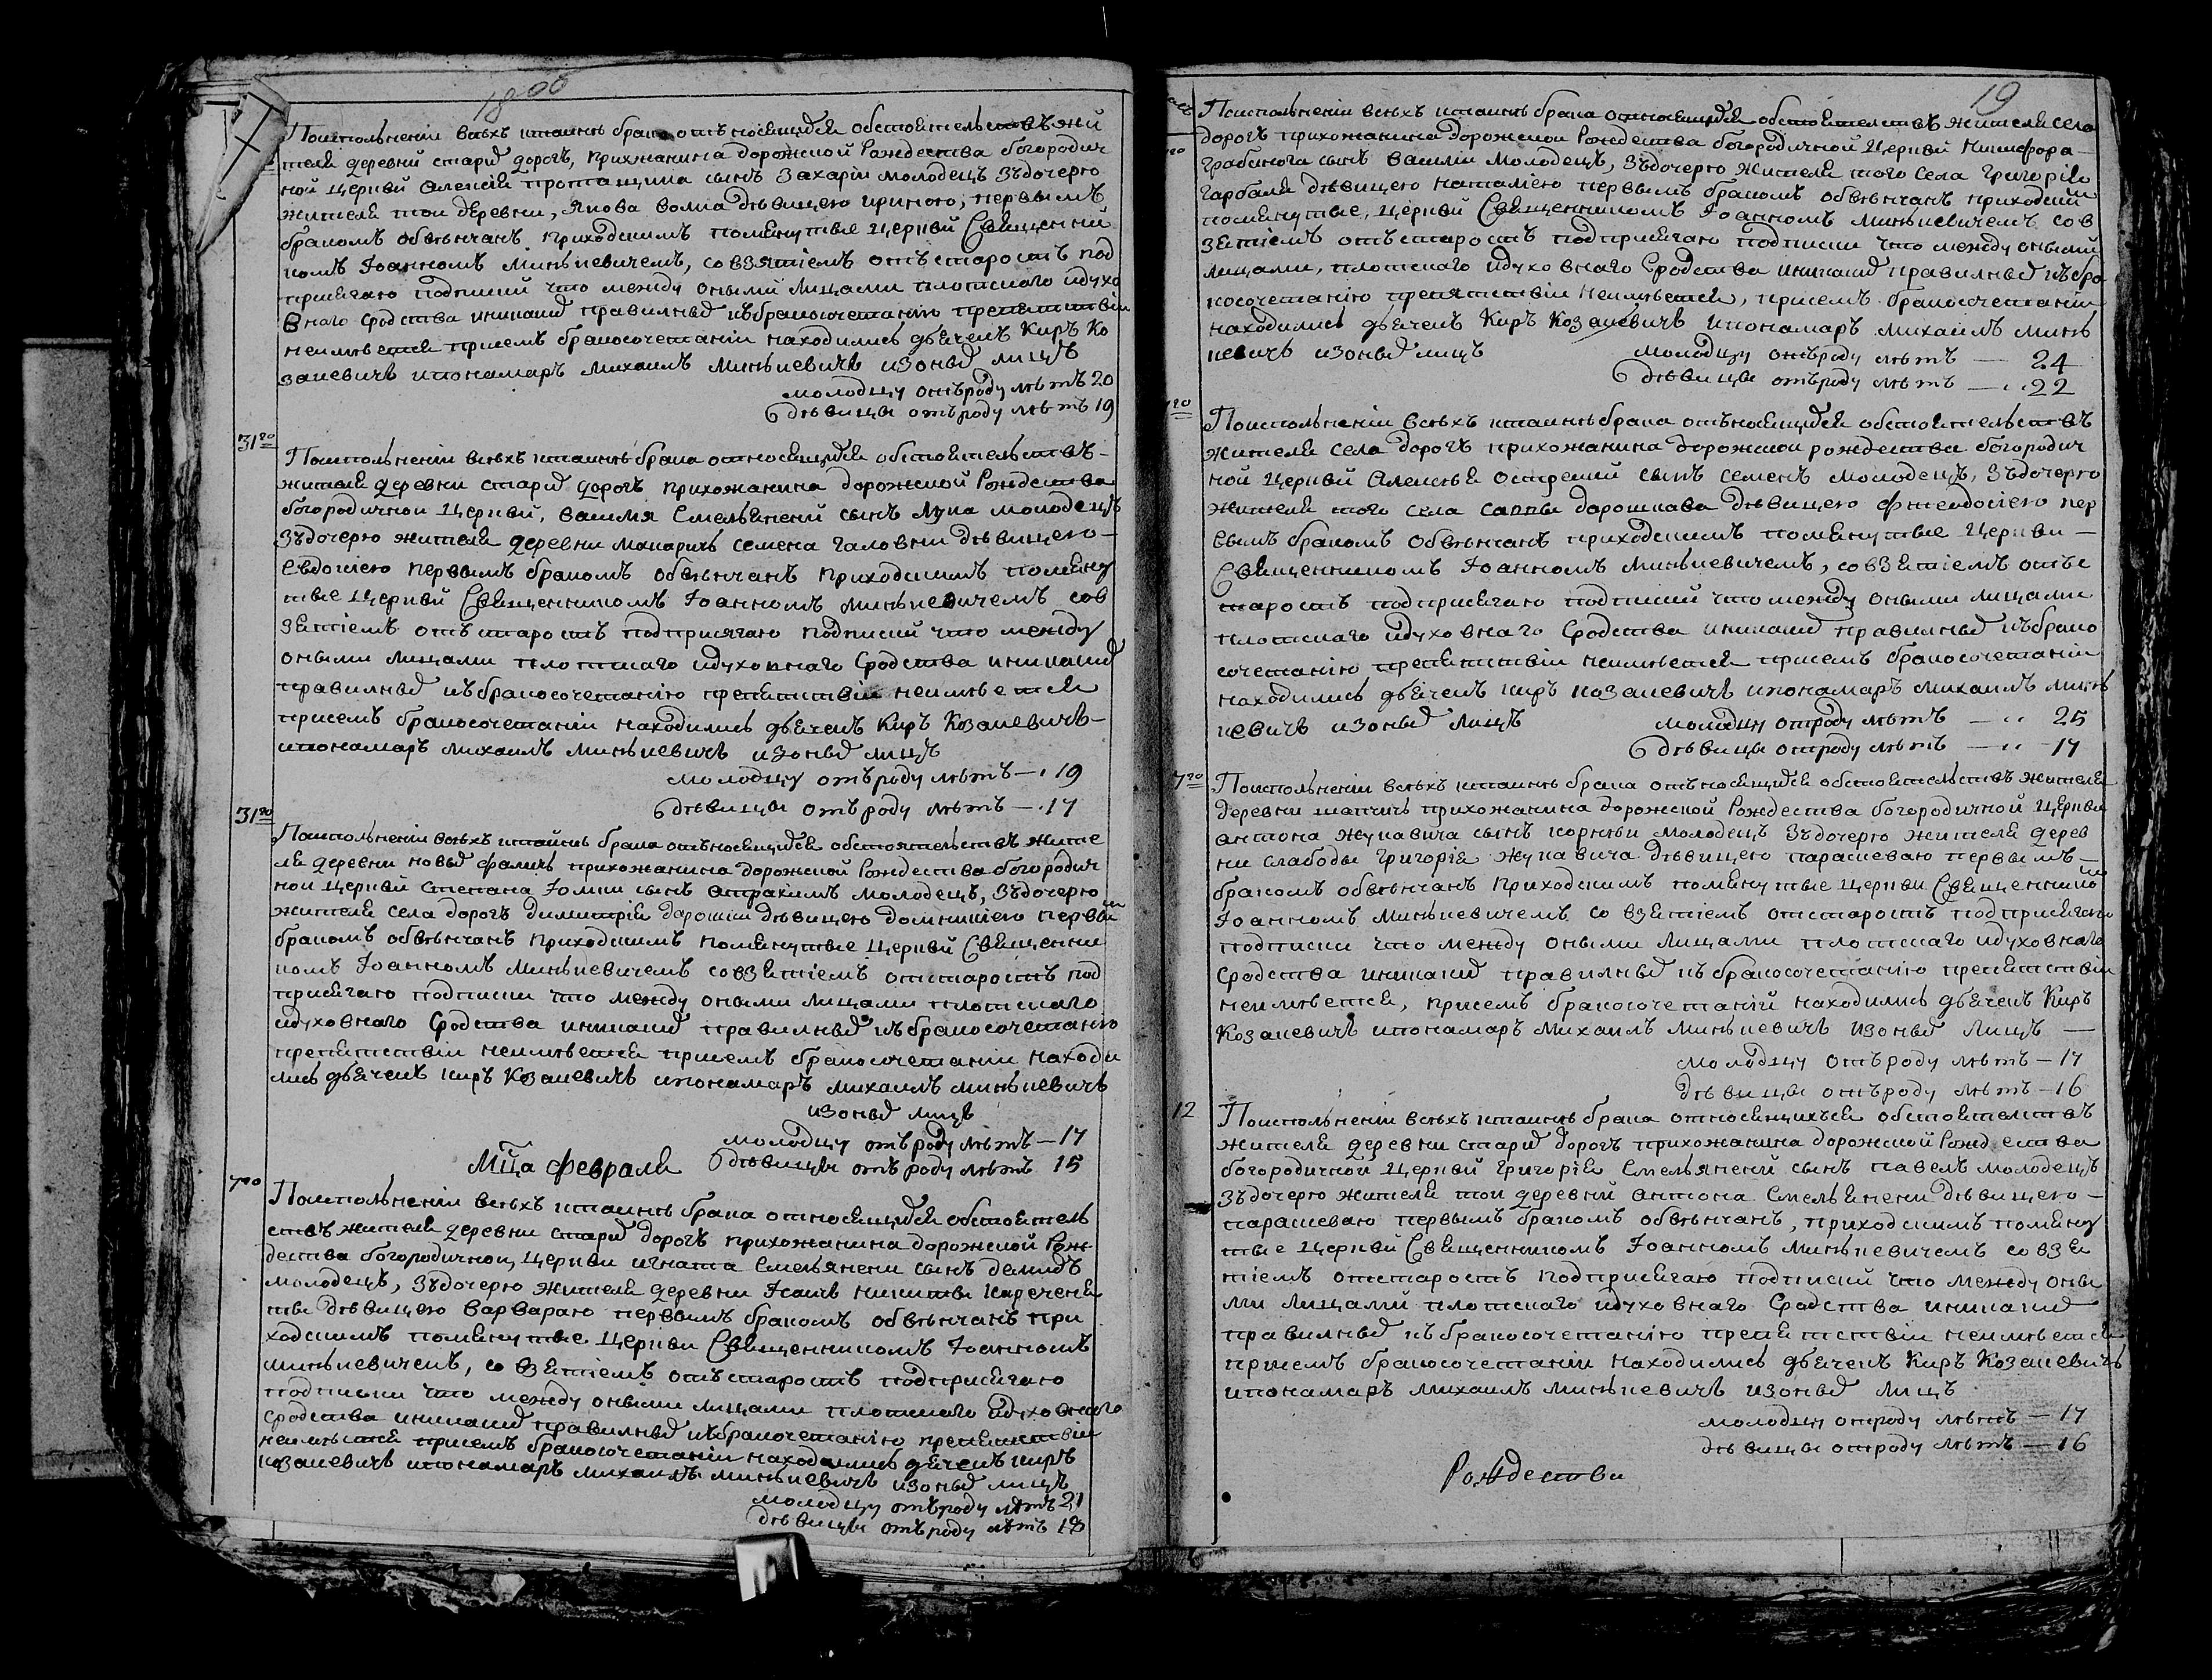 1800
Поисполненіи всѣхъ ктаинѣ брака отъносящыхся обстоятельствъ жи
теля деревни старых дорогъ, прихжанина дорожской Рождества богородич
ной церкви Алексѣя протащика сынъ Захаріи молодецъ зъдочерю
жителя тои деревни, Якова волка дѣвицею ириною, первымъ
бракомъ обвѣнчанъ приходскимъ помянутые церкви Священни
комъ Іоанномъ Минкевичемъ, совзятіемъ отъстаростъ под
присягаю подписки что между оными лицами плотского идухо
внаго сродства иникаких правилных къбракосочетанію препятствіи
неимѣется присемъ бракосочетаніи находились дьячекъ Киръ Ко
закевичъ ипонамаръ Михаилъ Минкевичъ изоных лицъ
молодцу отъроду лѣтъ 20
дѣвицы отъроду лѣтъ 19
31го
Поисполненіи всѣхъ ктаинѣ брака относящыхся обстоятельствъ
жителя деревни старых дорогъ прихожанина дорожской Рождества
богородичнои церкви, василя Емельянени сынъ Лука молодецъ
зъдочерю жителя деревни макаричъ семена галовни дѣвицею
Евдокіею первымъ бракомъ обвѣнчанъ приходскимъ помяну
тые церкви Священникомъ Іоанномъ Минкевичемъ сов
зятіемъ отъстаростъ подприсягаю подписки что между
оными лицами плотскаго идуховнаго Сродства иникаких
правилных къбракосочетанію препятствіи неимѣется
присемъ бракосочетаніи находились дьячекъ Киръ Козакевичъ
ипонамаръ Михаилъ Минкевичъ изоных лицъ
молодцу отъроду лѣтъ — 19
дѣвицы отъ роду лѣтъ — 17
31го
Поисполненіи всѣхъ ктаинѣ брака отъносящыхся обстоятельствъ жите
ля деревни новых фаличъ прихожанина дорожской Рождества богородич
нои церкви степана сынъ Атрахимъ молодецъ, зъдочерю
жителя села дорогъ димитрія дарошки дѣвицею домникіею первым
бракомъ обвѣнчанъ приходскимъ помянутые церкви Священни
комъ Іоанномъ Минкевичемъ совзятіемъ отстаростъ под
присягаю подписки что между оными лицами плотскаго
идуховнаго Сродства иникаких правилных къбракосочетанію
препятствіи неимѣется присемъ бракосочетаніи находи
лись дьячекъ киръ Козакевичъ ипонамаръ михаилъ минкевичъ
изоных лицъ
молодцу отъроду лѣтъ — 17
дѣвицы отъ роду лѣтъ 15
Мца февраля
7го
Поисполненіи всѣхъ ктаинѣ брака относящыхся обстоятель
ствъ жителя деревни старых дорогъ прихожанина дорожской Рож
дества богородичнои, церкви игната Емельянени сынъ демидъ
молодецъ, зъдочерю жителя деревни никиты
дѣвицею варвараю первымъ бракомъ обвѣнчанъ при
ходскимъ помянутые церкви Священникомъ Іоанномъ
минкевичемъ, со взятіемъ отъстаростъ подприсягаю
подписки что между оными лицами плотского идуховнаго
сродства иникаких правилных къбракочетанію препятствіи
неимѣется присемъ бракосочетаніи находились дячекъ киръ
козакевичъ ипонамаръ михаилъ минкевичъ изоных лицъ
молодцу отъроду лѣтъ 21
дѣвицы отъроду лѣтъ 18
19
Поисполненіи всѣхъ ктаинѣ брака относящыхся обстоятелствъ жителя села
дорогъ прихожанина дорожскои Рождества богородичной церкви Никифора
грабикога сынъ василіи молодецъ, зъдочерю жителя того села григорія
гарбаля дѣвицею наталіею первымъ бракомъ обвѣнчанъ приходским
помянутые, церкви Священникомъ Іоанномъ Минкевичемъ сов
зятіемъ отъстаростъ подприсягаю подписки что между оными
лицами, плотскаго идуховнаго Сродства иникаких правилных къбра
косочетанію препятствіи неимѣется, присемъ бракосочетаніи
находились дьячекъ Киръ Козакевичъ ипонамаръ михаилъ минк
кевичъ изоных лицъ
молодцу отъроду лѣтъ — 24
дѣвицы отъроду лѣтъ — 22
7го
Поисполненіи всѣхъ ктаинѣ брака отъносящыхся обстоятельствъ
жителя села дорогъ прихожанина дорожскои рождества богородич
ной церкви Алексѣя острейки сынъ семенъ молодецъ, зъдочерю
жителя того села саппы дарошкава дѣвицею фтеодосіею пер
вымъ бракомъ обвѣнчанъ приходскимъ помянутые церкви
Священникомъ Іоанномъ Минкевичемъ, совзятіемъ отъс
таростъ подприсягаю подписки что между оными лицами
плотскаго идуховнаго Сродства иникаких правилных къбрако
сочетанію препятствіи неимѣется присемъ бракосочетаніи
находились дьячекъ киръ козакевичъ ипонамаръ михаилъ минк
кевичъ изоных лицъ
молодцу отроду лѣтъ — 25
дѣвицы отроду лѣтъ — 17
7го
Поисполненіи всѣхъ ктаинѣ брака отъносящыхся обстоятельствъ жителя
деревни шапчичъ прихожанина дорожской Рождества богородичной церкви
антона жукавича сынъ корнѣи молодецъ зъдочерю жителя дерев
ни слабоды григорія жукавича дѣвицею параскеваю первымъ
бракомъ обвѣнчанъ приходскимъ помянутые церкви Священнико
Іоанномъ Минкевичемъ со взятіемъ отстаростъ подприсягаю
подписки что между оными лицами плотскаго идуховнаго
сродства иникаких правилных къбракосочетанію препятствіи
неимѣется, присемъ бракосочетаніи находились дьячекъ Киръ
Козакевичъ ипонамаръ Михаилъ Минкевичъ изоных лицъ —
молодцу отъроду лѣтъ — 17
дѣвицы отъроду лѣтъ — 16
12
Поисполненіи всѣхъ ктаинѣ брака относящихъся обстоятелствъ
жителя деревни старых дорогъ прихожанина дорожской Рождества
богородичной церкви григорія Емельянени сынъ павелъ молодецъ
зъдочерю жителя тои деревни антона Емельянени дѣвицею
параскеваю первымъ бракомъ обвѣнчанъ, приходскимъ помяну
тые церкви Священникомъ Іоанномъ Минкевичемъ со взя
тіемъ отстаростъ подприсягаю подписки что между оны
ми лицами плотскаго идуховнаго Сродства иникаких
правилных къбракосочетанію препятствіи неимѣется
присемъ бракосочетаніи находились дьячекъ Киръ Козакевичъ
ипонамаръ михаилъ минкевичъ изоных лицъ
молодцу отроду лѣтъ — 17
дѣвицы отроду лѣтъ — 16
Рождества